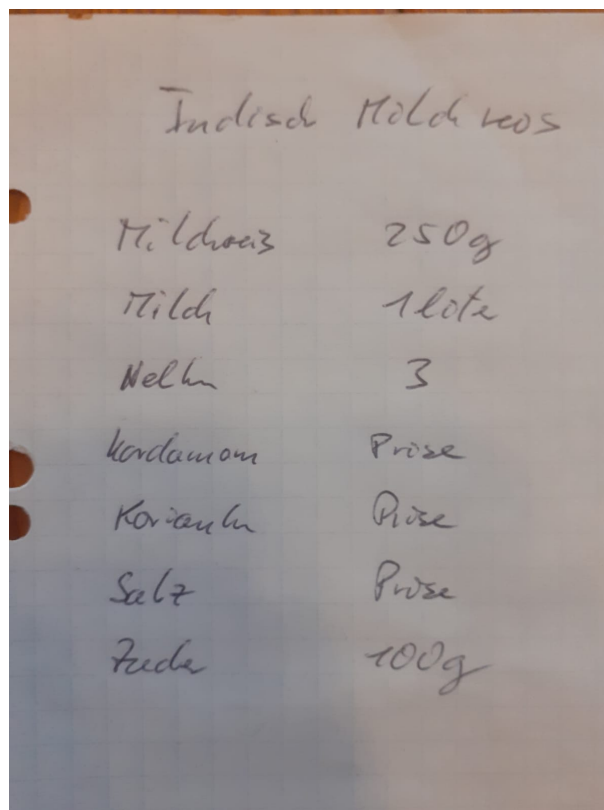 Indisch Milchreis
Milchreis 250g
Milch 1 liter
Nelken 3
Kardamom Prise
Koriander Prise
Salz Prise
Zucker 100g